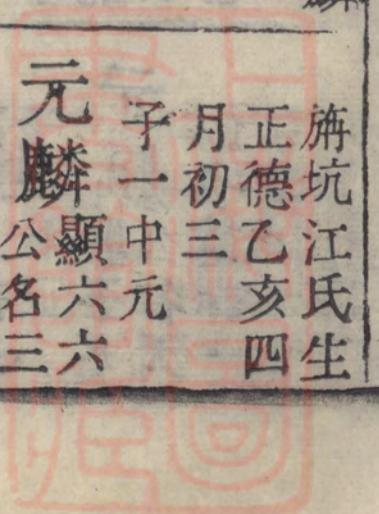 旃坑江氏生
正德乙亥四
月初三
子一中元
元麟
顯六六
公名三